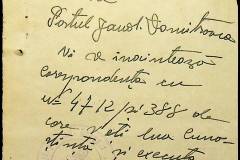 Postul Jand. Domitrovca
Ni se înaintează
corespondența cu
№ 4712 și 388 de
care veți lua cuno-
ștință și executa